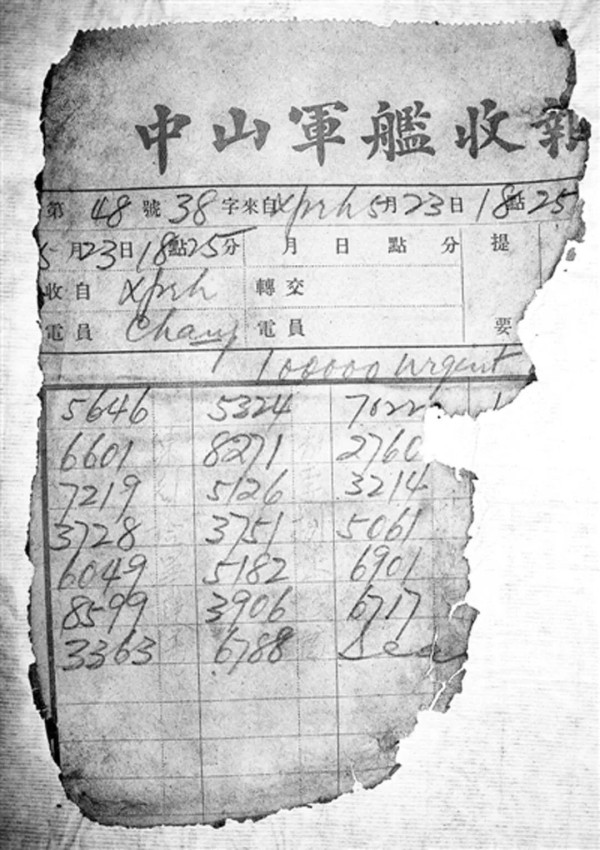 中山軍艦收報
第 48 號 38 字來自 xprh 5月23日18點25
5月23日18點25分 月 日 點 分 提
收自 xprh 轉交
電員 Chang 電員 要
100000 urgent
5646 5324 7022
6601 8271 2760
7219 5126 3214
3728 3751 5061
6049 5182 6901
8599 3906 6717
3363 6788